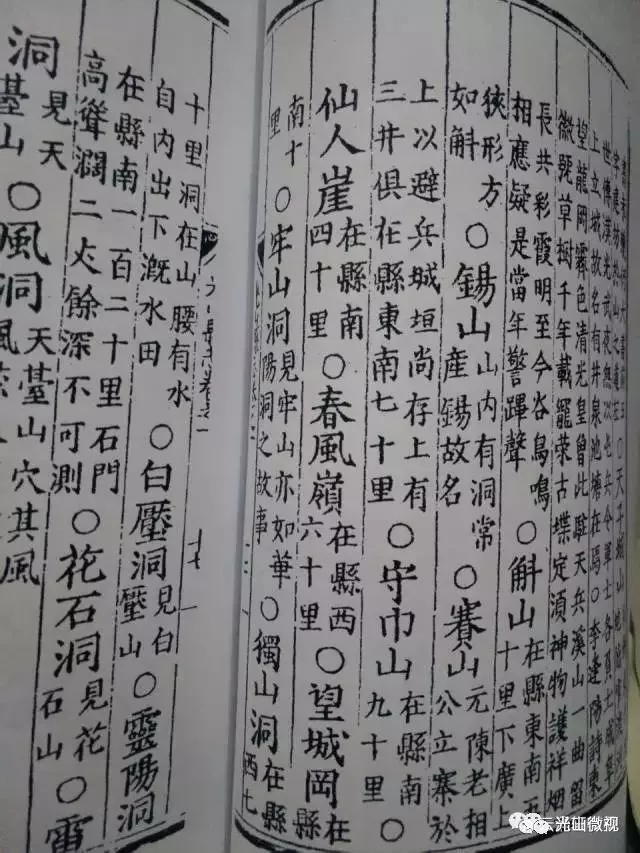 世傳漢光武夜憩次老兵令軍士各負土成阜
上立城故名有井泉池塘在焉○李逢陽詩東
望龍岡霽色清光皇曾此駐天兵溪山一曲留
徽號草樹千年載寵榮古堞定湏神物護祥烟
長共彩霞明至今谷鳥鳴相應疑是當年警蹕聲○斛山在縣東南五十里下廣上
狹形方如斛○錫山山内有洞常產錫故名○賽山元陳老相公立寨於
上以避兵城垣尚存上有三井俱在縣東南七十里○守巾山在縣南九十里○
仙人崖在縣南四十里○春風嶺在縣西六十里○望城岡在縣
南十里○牢山洞見牢山亦如華陽洞之故事○獨山洞在縣西七
十七
十里洞在山腰有水自内出下溉水田○白壓洞見白壓山○靈陽洞
在縣南一百二十里石門高聳濶二丈餘深不可測○花石洞見花石山○雷
洞見天臺山○風洞天臺山穴其風
云光山微视